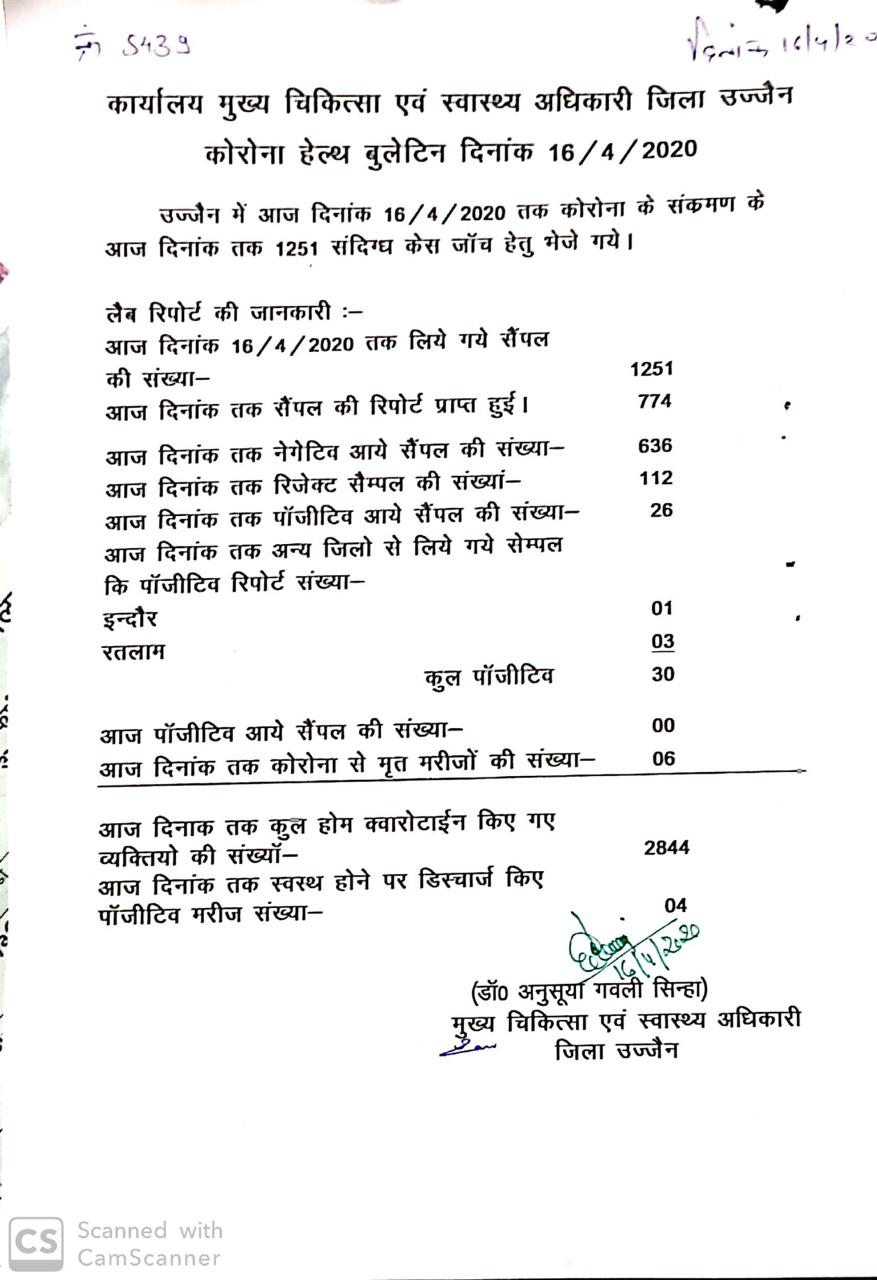 क्र 5439
दिनांक 16/4/20
कार्यालय मुख्य चिकित्सा एवं स्वास्थ्य अधिकारी जिला उज्जैन
कोरोना हेल्थ बुलेटिन दिनांक 16/4/2020
उज्जैन में आज दिनांक 16/4/2020 तक कोरोना के संकमण के
आज दिनांक तक 1251 संदिग्घ केस जॉच हेतु भेजे गये।
लैब रिपोर्ट की जानकारी :–
आज दिनांक 16/4/2020 तक लिये गये सैंपल
की संख्या– 1251
आज दिनांक तक सैंपल की रिपोर्ट प्राप्त हुई। 774
आज दिनांक तक नेगेटिव आये सैंपल की संख्या– 636
आज दिनांक तक रिजेक्ट सैम्पल की संख्यां– 112
आज दिनांक तक पॉजीटिव आये सैंपल की संख्या– 26
आज दिनांक तक अन्य जिलो से लिये गये सेम्पल
कि पॉजीटिव रिपोर्ट संख्या–
इन्दौर 01
रतलाम 03
कुल पॉजीटिव 30
आज पॉजीटिव आये सैंपल की संख्या– 00
आज दिनांक तक कोरोना से मृत मरीजों की संख्या– 06
आज दिनाक तक कुल होम क्वारोटाईन किए गए
व्यक्तियो की संख्यॉ– 2844
आज दिनांक तक स्वस्थ होने पर डिस्चार्ज किए
पॉजीटिव मरीज संख्या– 04
16/4/2020
(डॉ0 अनुसूया गवली सिन्हा)
मुख्य चिकित्सा एवं स्वास्थ्य अधिकारी
जिला उज्जैन
CS Scanned with
CamScanner